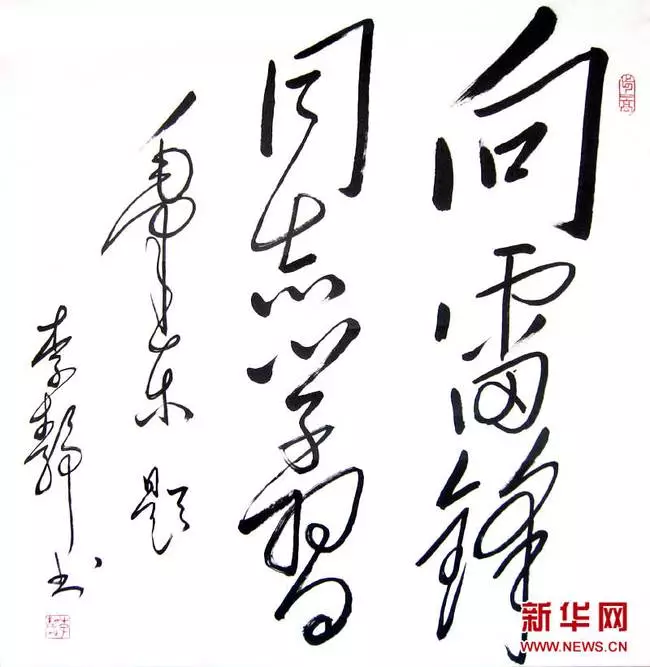 向雷锋
同志学习
毛泽东题
李静书
新华网
WWW.NEWS.CN